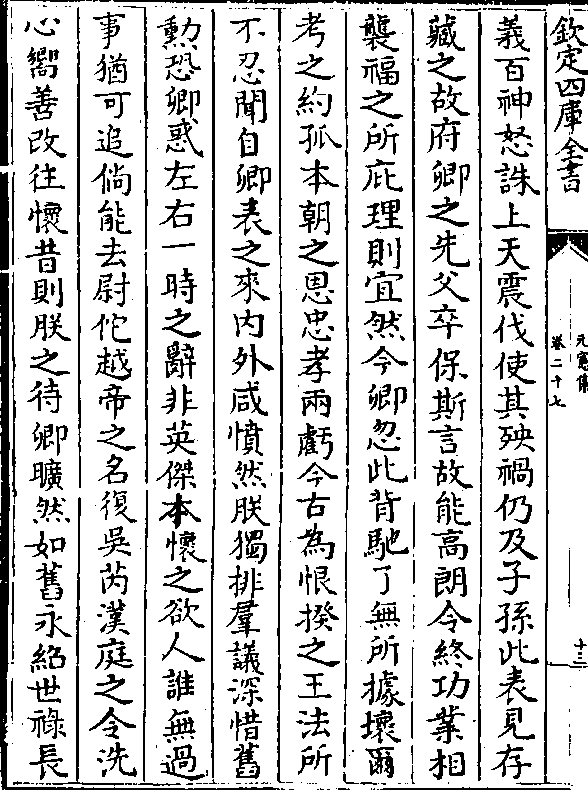 欽定四庫全書
元憲集
卷二十七
十三
義百神怒誅上天震伐使其殃禍仍及子孫此表見存
藏之故府卿之先父卒保斯言故能高朗令終功業相
襲福之所庇理則宜然今卿忽此背馳了無所據壞爾
考之約孤本朝之恩忠孝兩虧今古為恨揆之王法所
不忍聞自卿表之來內外咸憤然朕獨排羣議深惜舊
勲恐卿惑左右一時之辭非英傑本懷之欲人誰無過
事猶可追倘能去尉佗越帝之名復吳芮漢庭之令洗
心嚮善改往懷昔則朕之待卿曠然如舊永絕世祿長